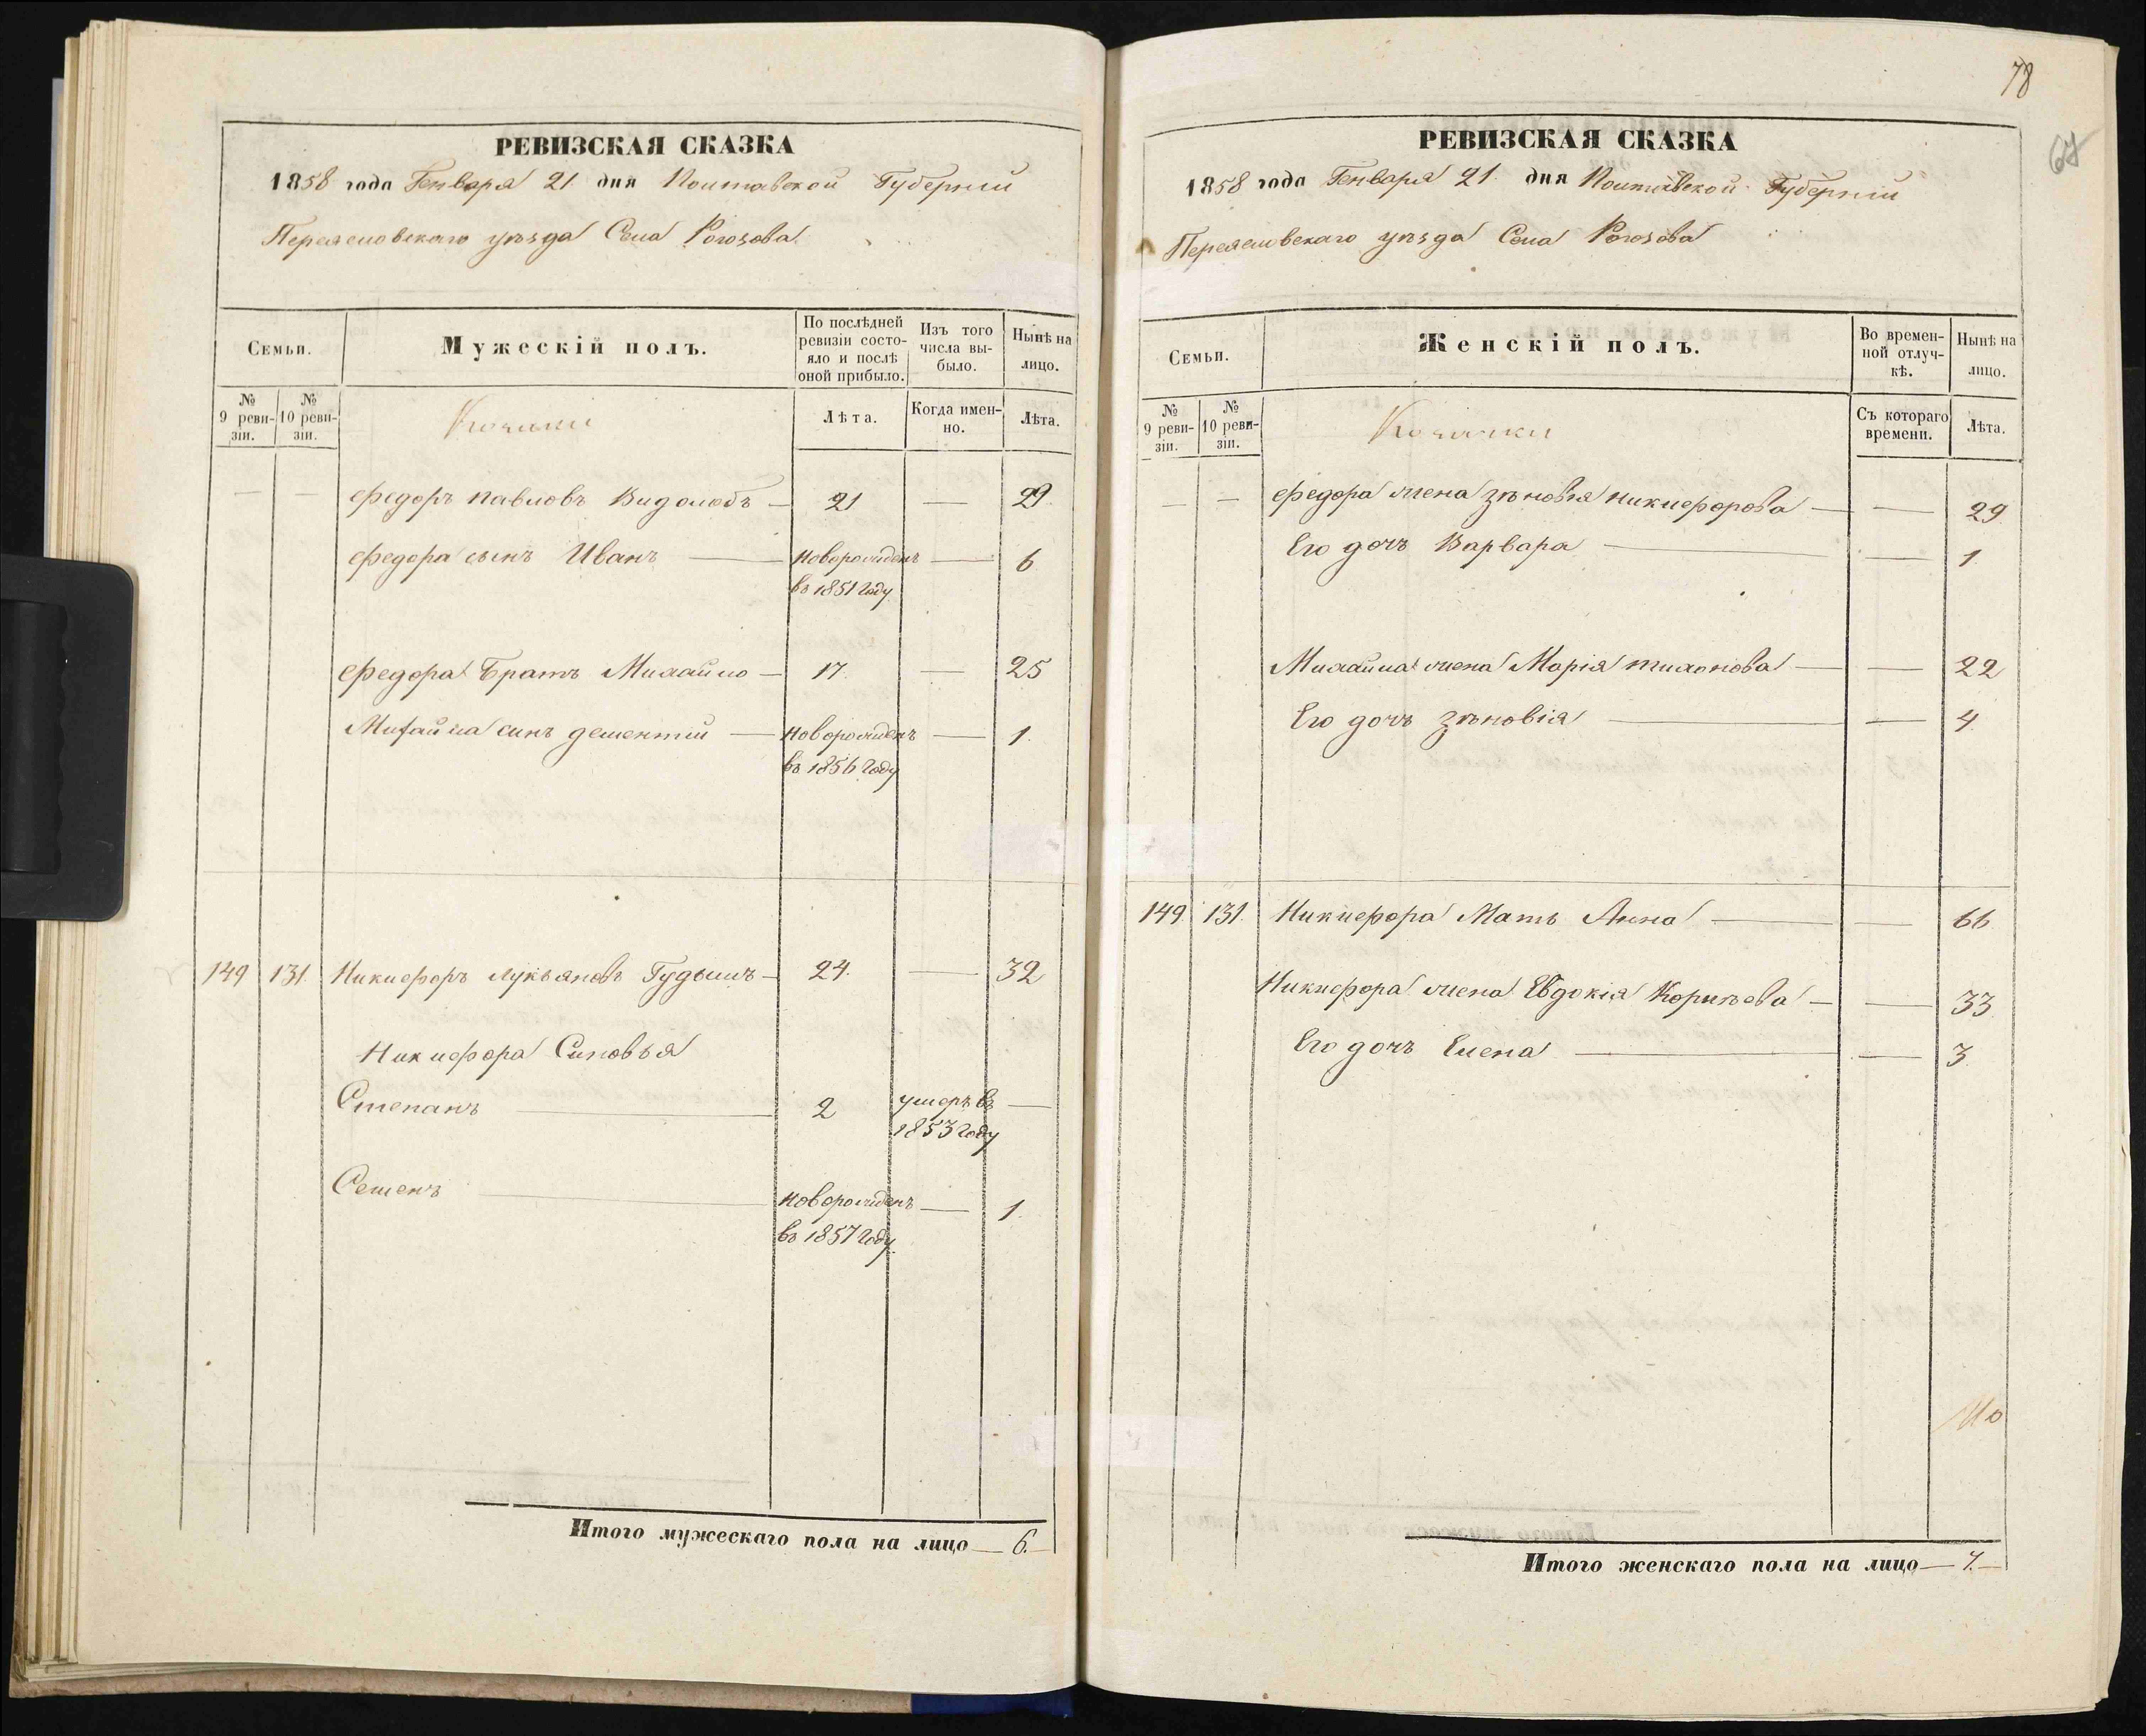 РЕВИЗСКАЯ СКАЗКА
1858 года Генваря 21 дня Полтавской Губерніи
Переяславскаго уѣзда Села Рогозова
Семьи.
Мужескій полъ.
По послѣдней ревизіи состояло и послѣ оной прибыло.
Изъ того числа выбыло.
Нынѣ на лицо.
№ 9 ревизіи.
№ 10 ревизіи.
Козаки
Лѣта.
Когда именно.
Лѣта.
— — Федоръ Павловъ Видолобъ — 21 — 29.
Федора сынъ Иванъ — Новорожденъ — 6
въ 1851 году
Федора Братъ Михайло — 17. — 25
Михайла синъ Дементій — Новорожденъ — 1.
въ 1856 году
149 131. Никифоръ Лукьяновъ Гудымъ — 24. — 32
Никифора Синовья
Степанъ — 2 умеръ въ —
1853 году
Семенъ — Новорожденъ — 1.
въ 1857 году
Итого мужескаго пола на лицо — 6. —
78
67
РЕВИЗСКАЯ СКАЗКА
1858 года Генваря 21. дня Полтавской Губерніи
Переяславскаго уѣзда Села Рогозова
Семьи.
Женскій полъ.
Во временной отлучкѣ.
Нынѣ на лицо.
№ 9 ревизіи.
№ 10 ревизіи.
Козачки
Съ котораго времени.
Лѣта.
— — Федора жена Зѣновія Никифорова — — 29.
Его дочъ Варвара — — 1.
Михайла жена Марія Тихонова — — 22
Его дочъ Зѣновія — — 4.
149. 131. Никифора Мать Анна — — 66.
Никифора жена Евдокія Корнѣева — — 33.
Его дочъ Елена — — 3.
Итого женскаго пола на лицо — 7. —